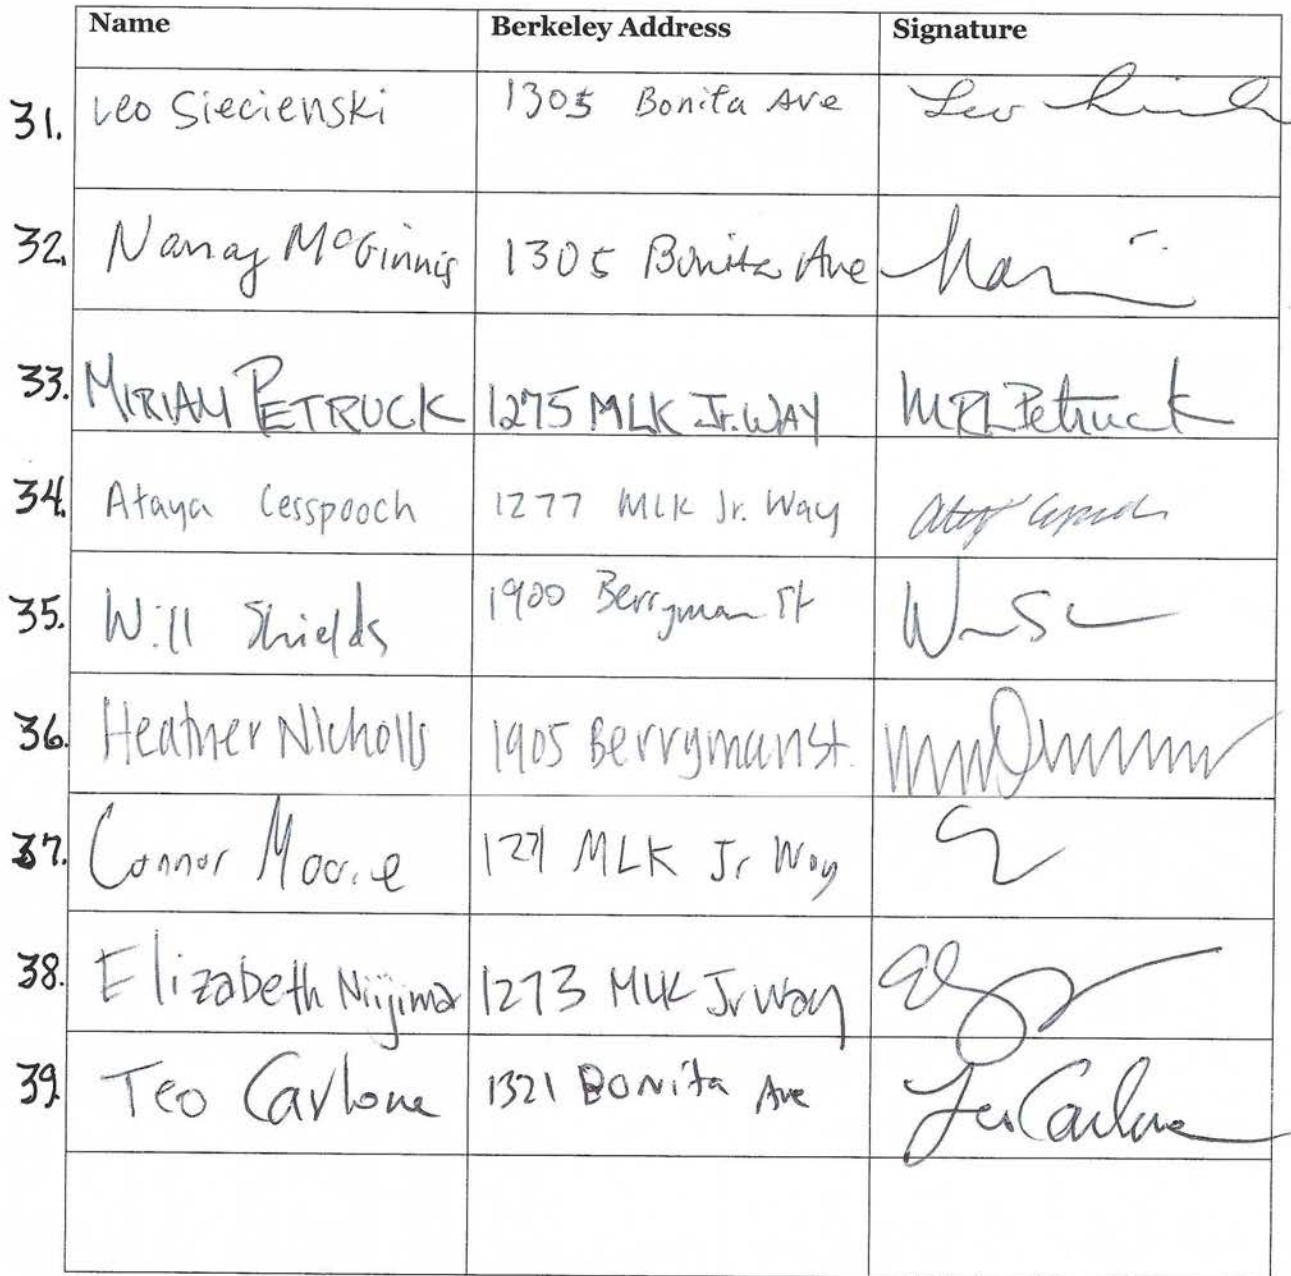 Name Berkeley Address Signature
31. Leo Siecienski 1305 Bonita Ave Leo
32. Nancy McGinnis 1305 Bonita Ave
33. MIRIAM PETRUCK 1275 MLK Jr. WAY MRLPetruck
34. Ataya Cesspooch 1277 MLK Jr. Way
35. Will Shields 1900 Berryman St
36. Heather Nicholls 1905 Berryman St.
37. Connor Moore 1271 MLK Jr Way
38. Elizabeth Niijima 1273 MLK Jr Way
39. Teo Carlone 1321 Bonita Ave Teo Carlone